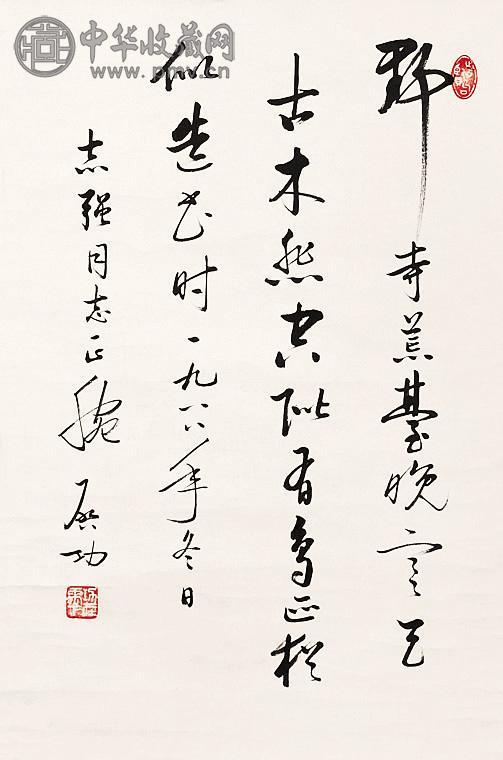 中华收藏网
野寺荒臺晚寒天
古木悲空阶有鸟迹猶
似造书时一九八八年冬日
志强同志正腕 启功